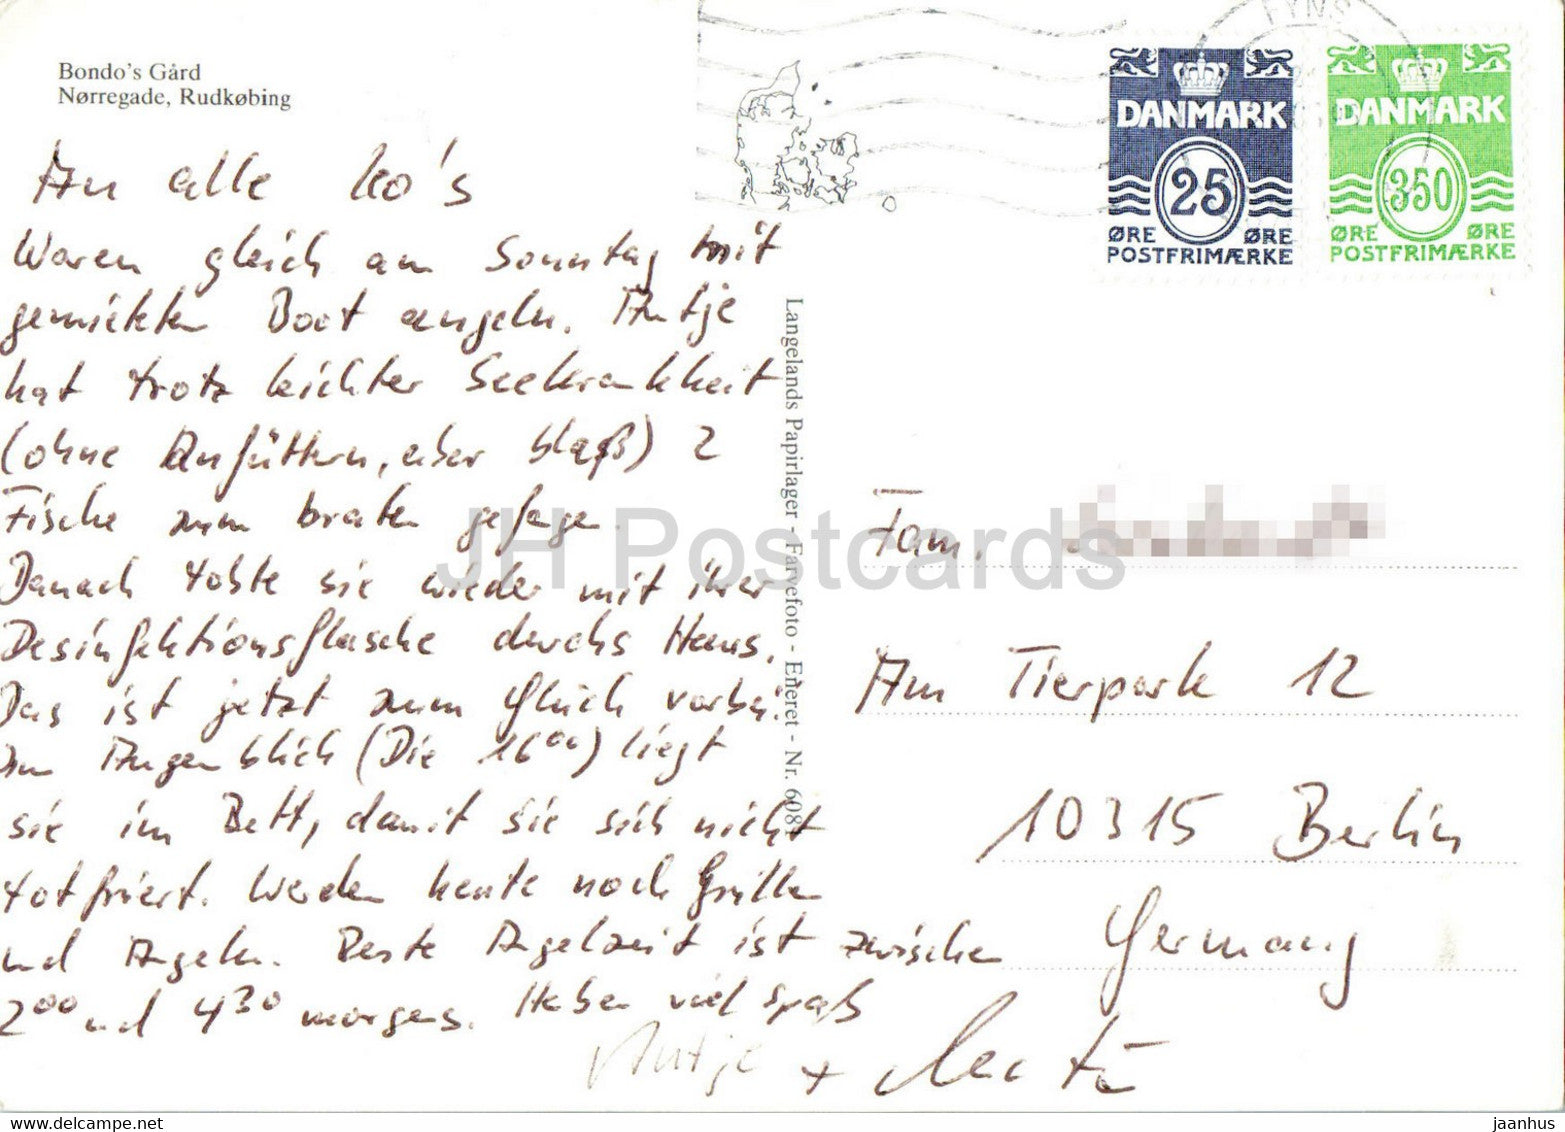 Bondo's Gård
Nørregade, Rudkøbing
FYNS
DANMARK
25
ØRE ØRE
POSTFRIMÆRKE
DANMARK
350
ØRE ØRE
POSTFRIMÆRKE
An alle Ko's
Waren gleich am Sonntag mit
gemieteten Boot angeln. Antje
hat trotz leichter Seekrankheit
(ohne Anfüttern, aber blaß) 2
Fische zum braten gefagen.
Danach tobte sie wieder mit ihrer
Desinfektionsflasche durchs Haus.
Das ist jetzt zum Glück vorbei.
Im Augenblick (Die 16⁰⁰) liegt
sie im Bett, damit sie sich nicht
totfriert. Werden heute noch Grillen
und Angeln. Beste Angelzeit ist zwischen
2⁰⁰ und 4³⁰ morgens. Haben viel spaß
Antje
+
Langelands Papirlager - Farvefoto - Eneret - Nr. 608
Fam.
Am Tierpark 12
10315 Berlin
Germany
JH Postcards
jaanhus
www.delcampe.net